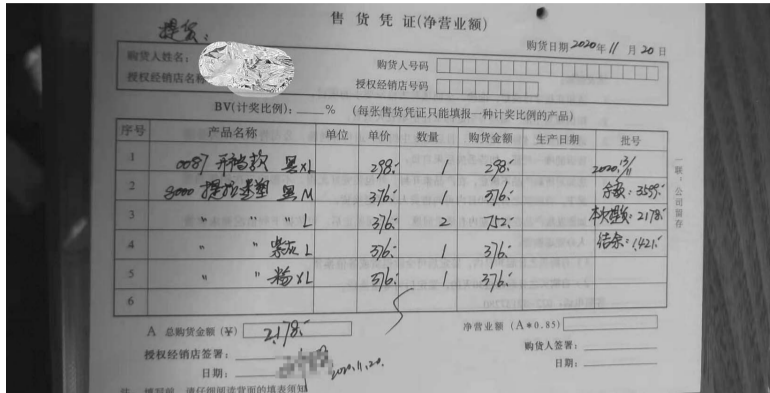 售货凭证(净营业额)
提货:
购货日期 2020年 11 月 20 日
购货人姓名:
购货人号码
授权经销店名称
授权经销店号码
BV(计奖比例):____% (每张售货凭证只能填报一种计奖比例的产品)
序号 产品名称 单位 单价 数量 购货金额 生产日期 批号
1 0087 开裆款 黑XL 298.- 1 298.- 2020.13/11
2 8000 提拉塑 黑M 376.- 1 376.- 余款:3599.-
3 " " L 376.- 2 752.- 本次提货:2178.-
4 " " 紫灰L 376.- 1 376.- 结余:1421.-
5 " " 粉XL 376.- 1 376.-
6
一联:公司留存
A 总购货金额(¥) 2,178.-
净营业额(A*0.85)
授权经销店签署:
购货人签署:
日期: 2020.11.20.
日期:
注 填写前,请仔细阅读背面的填表须知